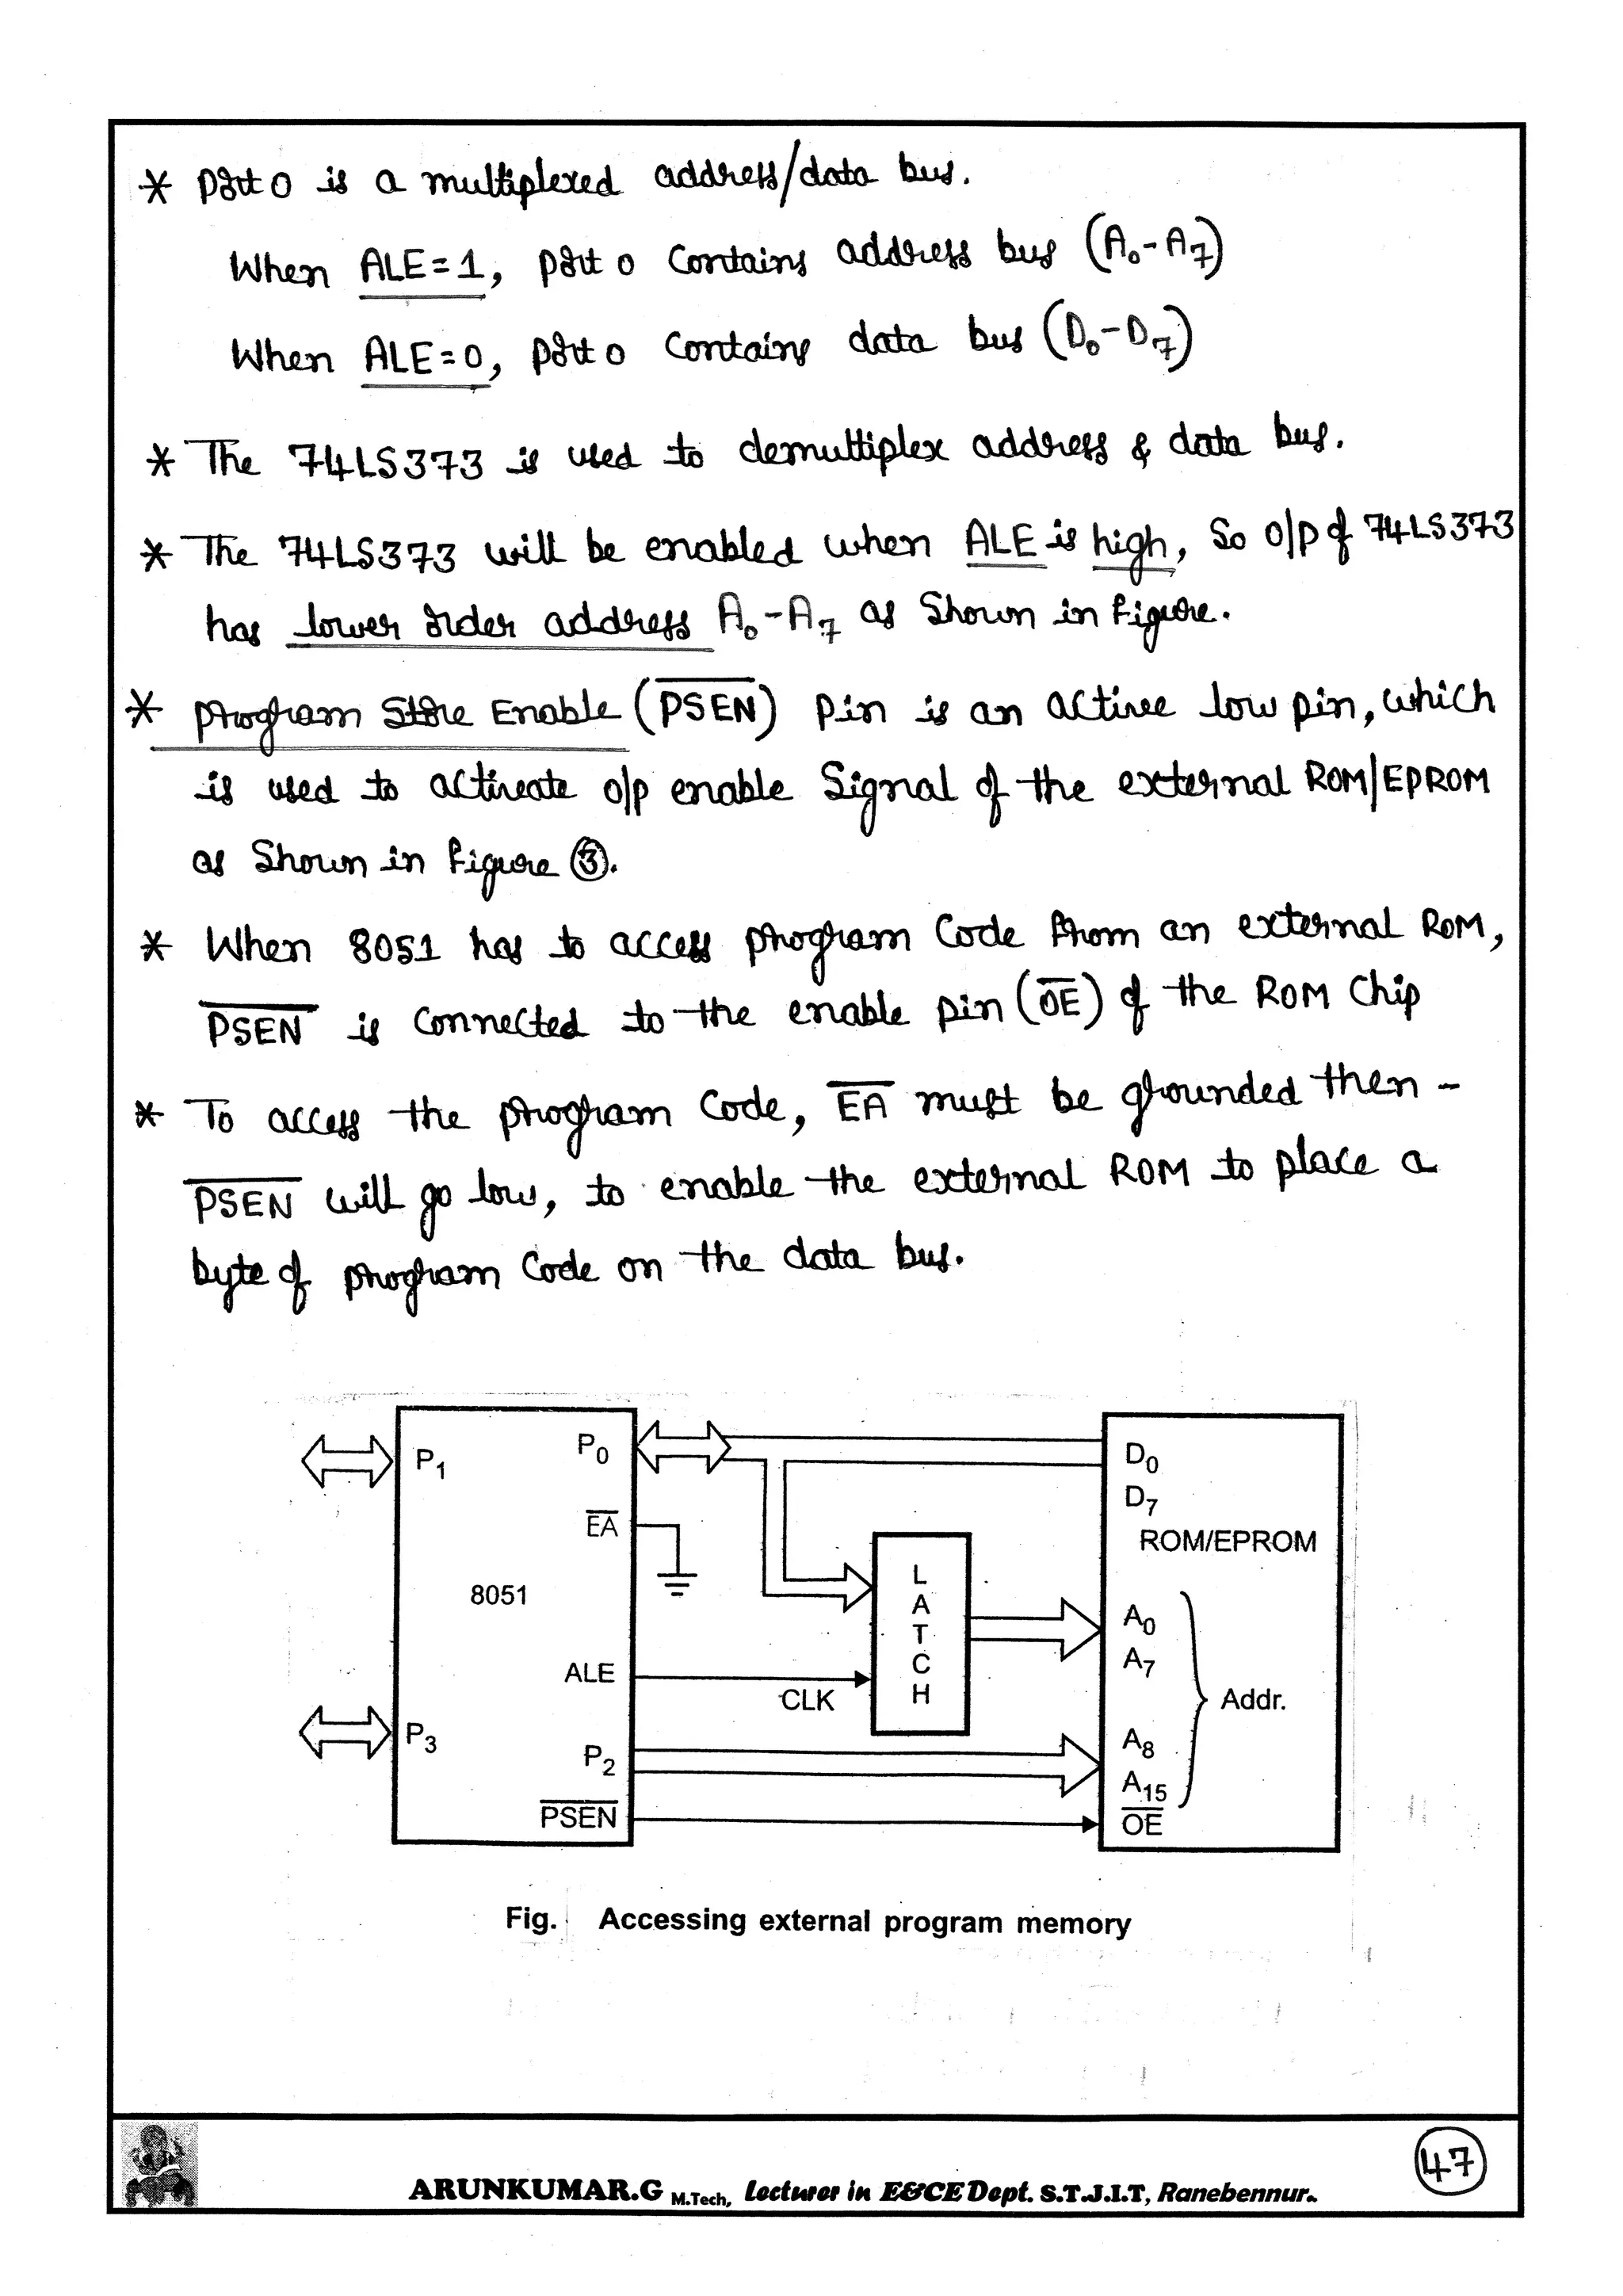 * Port 0 is a multiplexed address/data bus.
When ALE=1, port 0 contains address bus (A₀-A₇)
When ALE=0, port 0 contains data bus (D₀-D₇)
* The 74LS373 is used to demultiplex address & data bus.
* The 74LS373 will be enabled when ALE is high, So o/p of 74LS373
has lower order address A₀-A₇ as shown in figure.
* program Store Enable (P̅S̅E̅N̅) pin is an active low pin, which
is used to activate o/p enable signal of the external ROM/EPROM
as shown in figure ③.
* When 8051 has to access program code from an external ROM,
P̅S̅E̅N̅ is connected to the enable pin (O̅E̅) of the ROM chip
* To access the program code, E̅A̅ must be grounded then -
P̅S̅E̅N̅ will go low, to enable the external ROM to place a
byte of program code on the data bus.
P₁ P₀ D₀
D₇
E̅A̅ ROM/EPROM
8051 LATCH A₀
A₇
ALE CLK Addr.
P₃ A₈
P₂ A₁₅
P̅S̅E̅N̅ O̅E̅
Fig. Accessing external program memory
47
ARUNKUMAR.G M.Tech, Lecturer in E&CE Dept. S.T.J.I.T, Ranebennur.